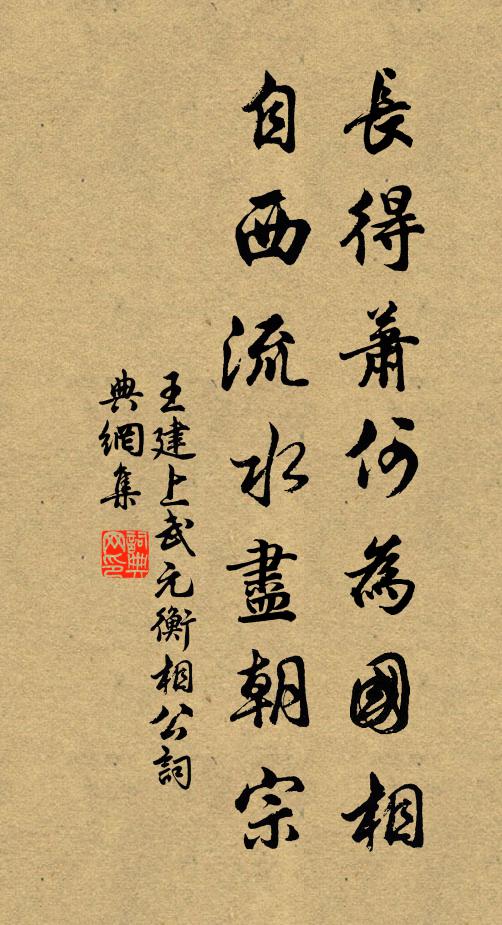 長得蕭何為國相
自西流水盡朝宗
王建上武元衡相公詞
典網集
詞典
网印